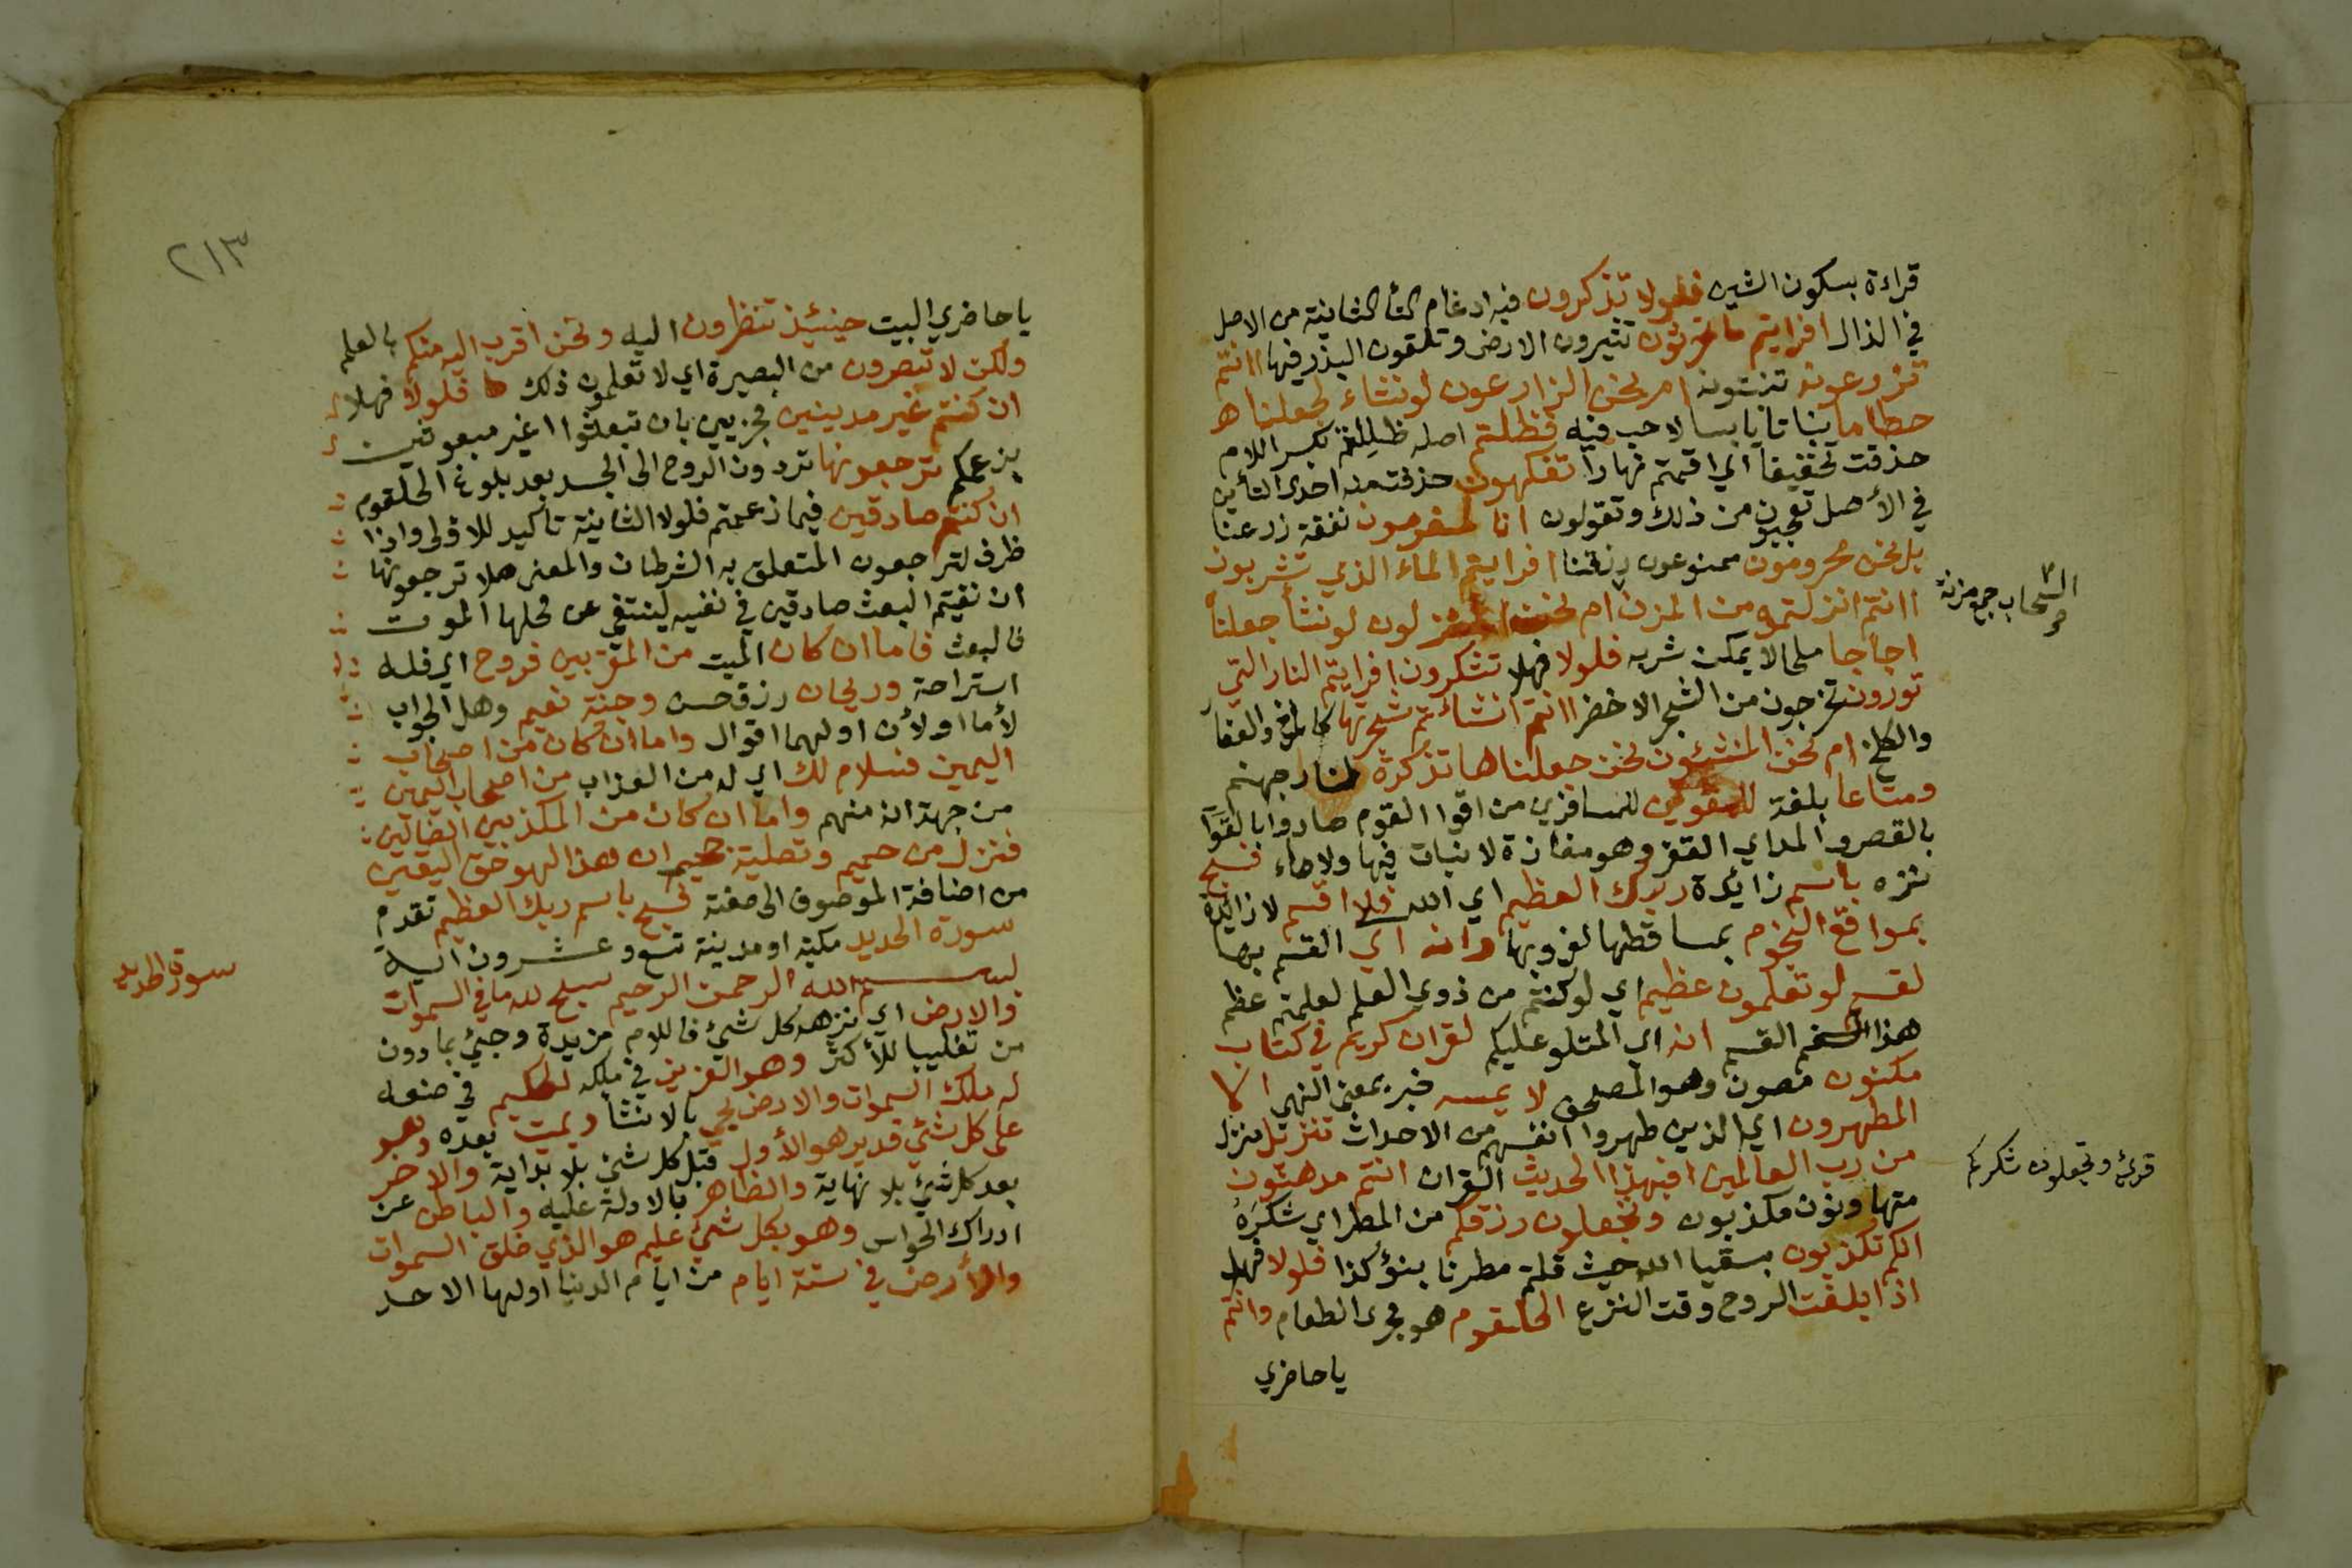 قراءة بسكون الشين فلولا تذكرون فيه ادغام التأ الثانية من الاصل
في الذال افرايتم ما تحرثون تثيرون الارض وتلقون البذر فيها اانتم
تزرعونه تنبتونه ام نحن الزارعون لو نشاء لجعلناه
حطاما نباتا يابسا لا حب فيه فظلتم اصله ظللتم بكسر اللام
حذفت تخفيفا اي اقمتم نهارا تفكهون حذفت منه احدى التأين
في الأصل تعجبون من ذلك وتقولون انا لمغرمون نفقة زرعنا
بل نحن محرومون ممنوعون رزقنا افرايتم الماء الذي تشربون
اانتم انزلتموه من المزن ام نحن المنزلون لو نشأ جعلناه
اجاجا ملحا لا يمكن شربه فلولا فهلا تشكرون افرايتم النار التي
تورون تخرجون من الشجر الاخضر اانتم انشاتم شجرتها كالمرخ والعفار
والكلخ ام نحن المنشئون نحن جعلناها تذكرة لنار جهنم
ومتاعا بلغة للمقوين للمسافرين من اقوا القوم صاروا بالقوا
بالقصر والمد اي القفز وهو مفازة لا نبات فيها ولا ماء فسبح
نزه باسم زائدة ربك العظيم اي الله فلا اقسم لا زائدة
بمواقع النجوم بمساقطها لغروبها وانه اي القسم بها
لقسم لو تعلمون عظيم اي لو كنتم من ذوي العلم لعلمتم عظم
هذا القسم انه اي المتلو عليكم لقران كريم في كتاب
مكنون مصون وهو المصحف لا يمسه خبر بمعنى النهي الا
المطهرون اي الذين طهروا انفسهم من الاحداث تنزيل منزل
من رب العالمين افبهذا الحديث القران انتم مدهنون
متهاونون مكذبون وتجعلون رزقكم من المطر اي شكره
انكم تكذبون بسقيا الله حيث قلتم مطرنا بنؤ كذا فلولا فهلا
اذا بلغت الروح وقت النزع الحلقوم هو مجرى الطعام وانتم
يا حاضري
السحاب جمع مزنة
قرئ وتجعلون شكركم
٢١٣
يا حاضري البيت حينئذ تنظرون اليه ونحن اقرب اليه منكم بالعلم
ولكن لا تبصرون من البصيرة اي لا تعلمون ذلك فلولا فهلا
ان كنتم غير مدينين مجزيين بان تبعثوا اي غير مبعوثين
بزعمكم ترجعونها تردون الروح الى الجسد بعد بلوغ الحلقوم
ان كنتم صادقين فيما زعمتم فلولا الثانية تأكيد للاولى واذا
ظرف لتراجعون المتعلق به الشرطان والمعنى هلا ترجعونها
ان نفيتم البعث صادقين في نفيه لينتفي عن محلها الموت
فالبعث فاما ان كان الميت من المقربين فروح اي فله
استراحة وريحان رزق حسن وجنة نعيم وهل الجواب
لأما او لأن او لهما اقوال واما ان كان من اصحاب
اليمين فسلام لك اي له من العذاب من اصحاب اليمين
من جهة انه منهم واما ان كان من المكذبين الضالين
فنزل من حميم وتصلية جحيم ان هذا لهو حق اليقين
من اضافة الموصوف الى صفته فسبح باسم ربك العظيم تقدم
سورة الحديد مكية او مدنية تسع وعشرون اية
بسم الله الرحمن الرحيم سبح لله ما في السموات
والارض اي نزهه كل شئ فاللام مزيدة وجئ بما دون
من تغليبا للأكثر وهو العزيز في ملكه الحكيم في صنعه
له ملك السموات والارض يحيي بالانشا ويميت بعده وهو
على كل شئ قدير هو الأول قبل كل شئ بلا بداية والاخر
بعد كل شئ بلا نهاية والظاهر بالادلة عليه والباطن عن
ادراك الحواس وهو بكل شئ عليم هو الذي خلق السموات
والأرض في ستة ايام من ايام الدنيا اولها الاحد
سورة الحديد